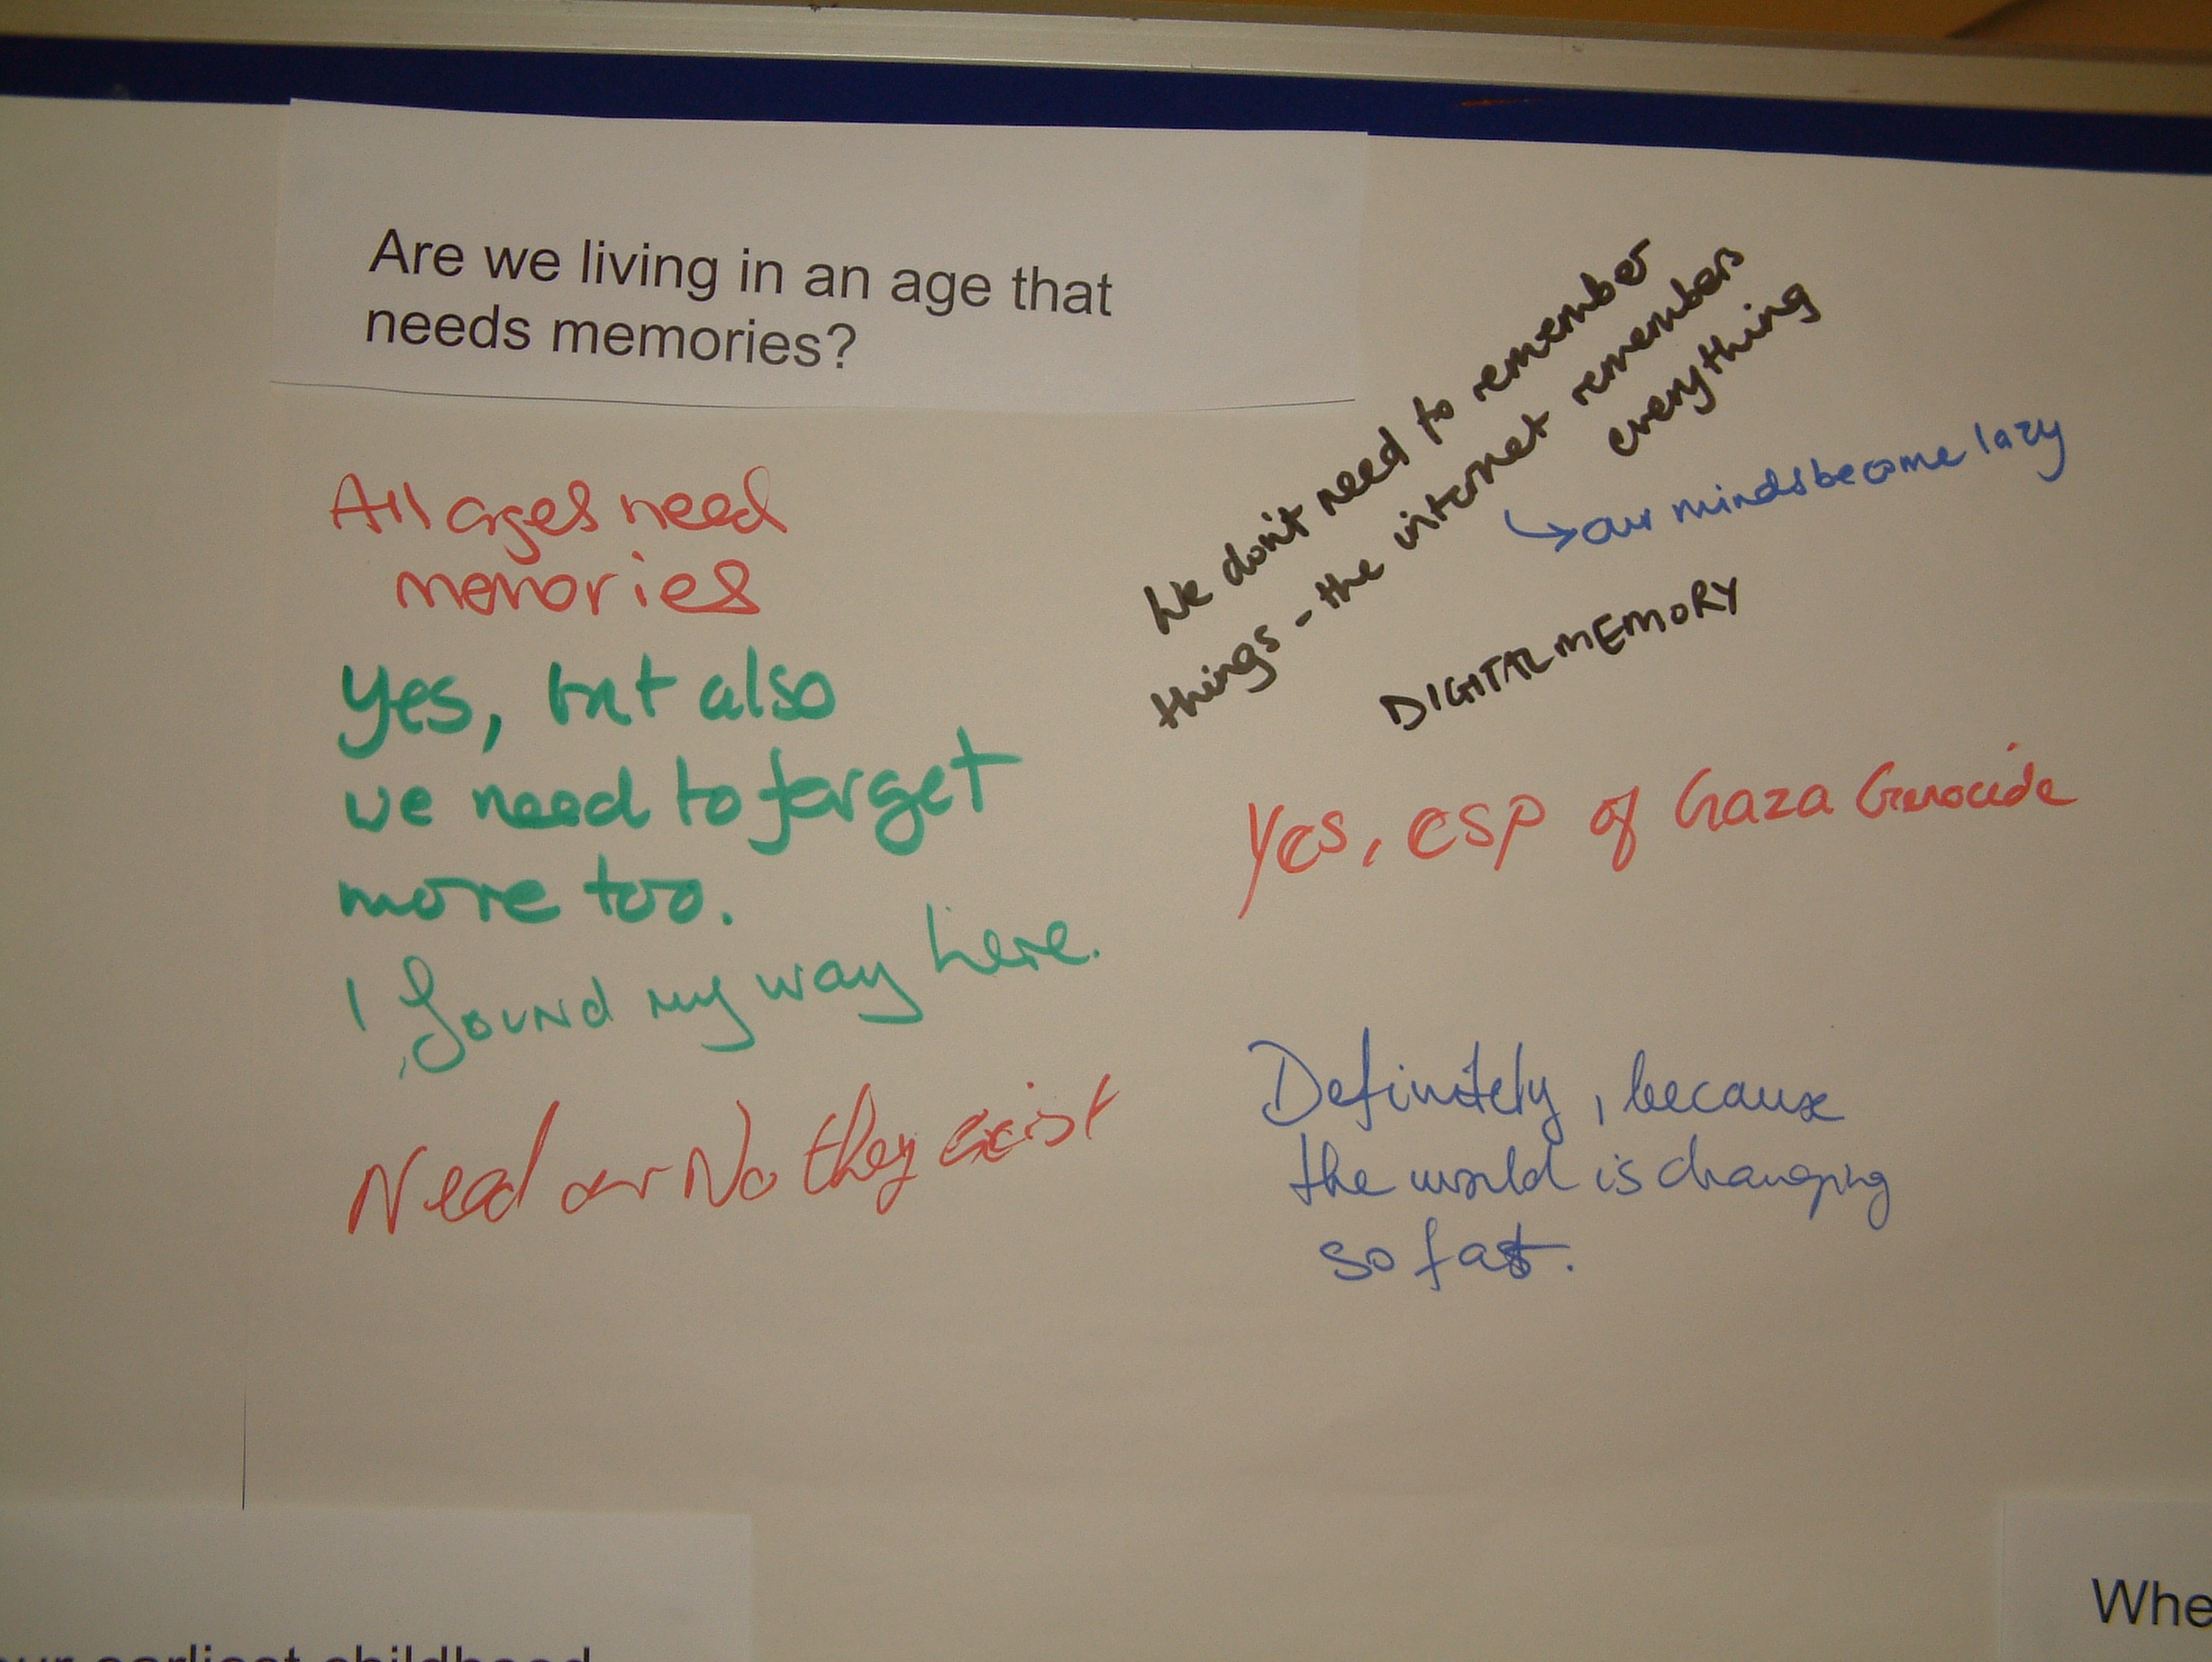 Are we living in an age that
needs memories?
All ages need
memories
Yes, but also
we need to forget
more too.
I found my way here.
Need or No they exist
We don't need to remember
things - the internet remembers
everything
our minds become lazy
DIGITAL MEMORY
Yes, esp of Gaza Genocide
Definitely, because
the world is changing
so fast.
earliest childhood